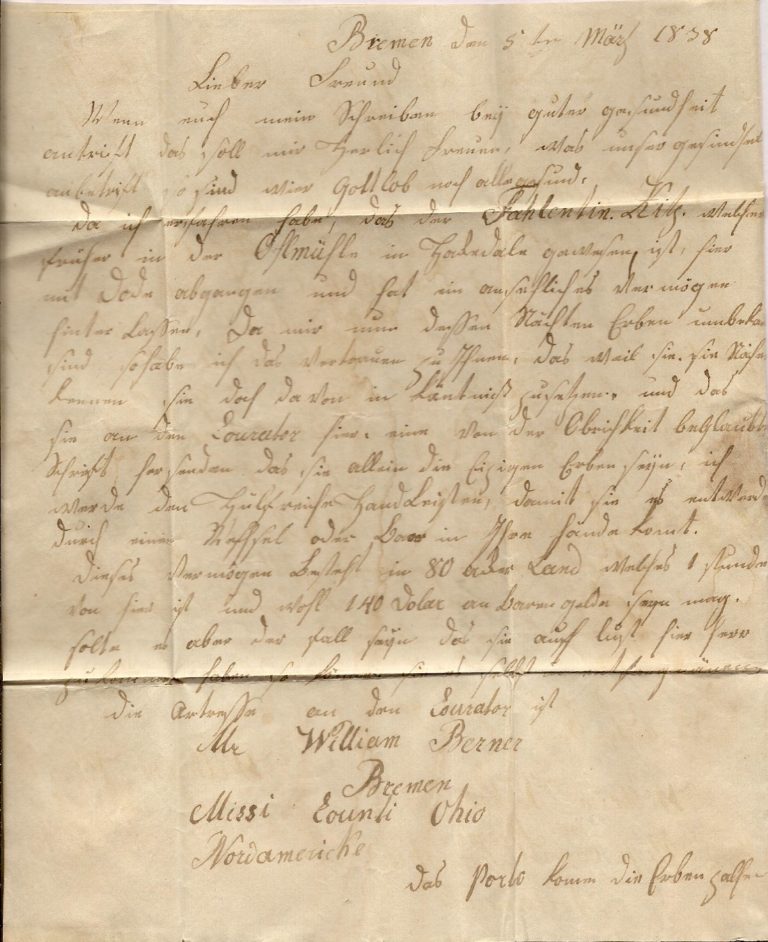 Bremen den 5 ten März 1838
Lieber Freund
Wenn euch mein Schreiben bey guter gesundheit
antrift das soll mir Herlich freuen, was unser gesindsel
anbetrift so sind wier Gottlob noch alle gesund.
Da ich erfahren habe, das der Fahlentin. Kitz. welcher
früher in der Öhlmühle in gewesen ist, hier
mit Dode abgangen und hat ein ansehliches vermögen
hinter Lassen. Da mir nun dessen Nächten Erben unbekan
sind so habe ich das vertrauen zu Ihnen, das weil sie. sie Näher
kennen sie doch da von in käntniß zu setzen, und das
sie an den Courator hier. eine von der Obrichkeit beglaubte
Schrift her senden das sie allein die Eizigen Erben seyn, ich
werde den Hülfreiche Hand Leisten, damit sie es entweder
durch einen Wechsel oder Baar in Ihre hände komt.
Dieses vermögen besteht in 80 acker Land welches 1 stunde
von hier ist und wohl 140 Dolar an Baren gelde seyn mag.
solte es aber der fall seyn das sie auch lust hier herr
zu kommen haben so können sie es selbst
die Artresse an den Courator ist
Mr William Berner
Bremen
Missi Counti Ohio
Nordamericke
das Porto könen die Erben zahlen